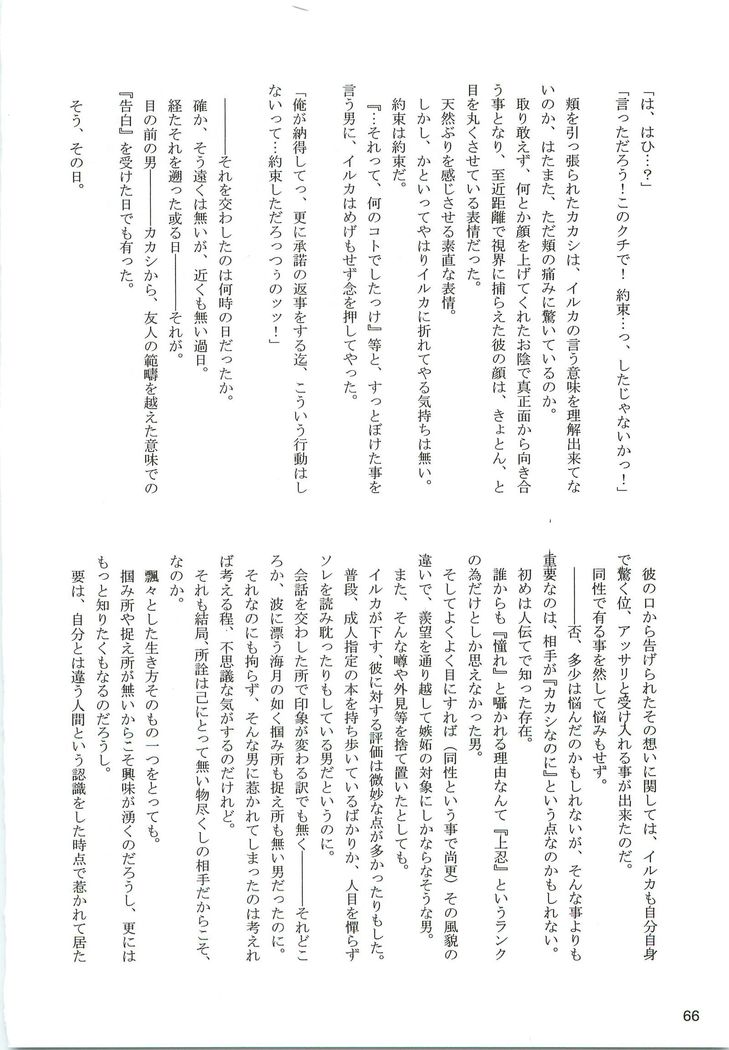 「は、はひ…?」
「言っただろう!このクチで! 約束…っ、したじゃないかっ!」
頬を引っ張られたカカシは、イルカの言う意味を理解出来てな
いのか、はたまた、ただ頬の痛みに驚いているのか。
取り敢えず、何とか顔を上げてくれたお陰で真正面から向き合
う事となり、至近距離で視界に捕らえた彼の顔は、きょとん、と
目を丸くさせている表情だった。
天然ぶりを感じさせる素直な表情。
しかし、かといってやはりイルカに折れてやる気持ちは無い。
約束は約束だ。
『…それって、何のコトでしたっけ』等と、すっとぼけた事を
言う男に、イルカはめげもせず念を押してやった。
「俺が納得してっ、更に承諾の返事をする迄、こういう行動はし
ないって…約束しただろっつぅのッッ!」
――――それを交わしたのは何時の日だったか。
確か、そう遠くは無いが、近くも無い過日。
経たそれを遡った或る日――――それが。
目の前の男――――カカシから、友人の範疇を越えた意味での
『告白』を受けた日でも有った。
そう、その日。
彼の口から告げられたその想いに関しては、イルカも自分自身
で驚く位、アッサリと受け入れる事が出来たのだ。
同性で有る事を然して悩みもせず。
――――否、多少は悩んだのかもしれないが、そんな事よりも
重要なのは、相手が『カカシなのに』という点なのかもしれない。
初めは人伝てで知った存在。
誰からも『憧れ』と囁かれる理由なんて『上忍』というランク
の為だけとしか思えなかった男。
そしてよくよく目にすれば(同性という事で尚更)その風貌の
違いで、羨望を通り越して嫉妬の対象にしかならなそうな男。
また、そんな噂や外見等を捨て置いたとしても。
イルカが下す、彼に対する評価は微妙な点が多かったりもした。
普段、成人指定の本を持ち歩いているばかりか、人目を憚らず
ソレを読み耽ったりもしている男だというのに。
会話を交わした所で印象が変わる訳でも無く――――それどこ
ろか、波に漂う海月の如く掴み所も捉え所も無い男だったのに。
それなのにも拘らず、そんな男に惹かれてしまったのは考えれ
ば考える程、不思議な気がするのだけれど。
それも結局、所詮は己にとって無い物尽くしの相手だからこそ、
なのか。
飄々とした生き方そのもの一つをとっても。
掴み所や捉え所が無いからこそ興味が湧くのだろうし、更には
もっと知りたくもなるのだろうし。
要は、自分とは違う人間という認識をした時点で惹かれて居た
66